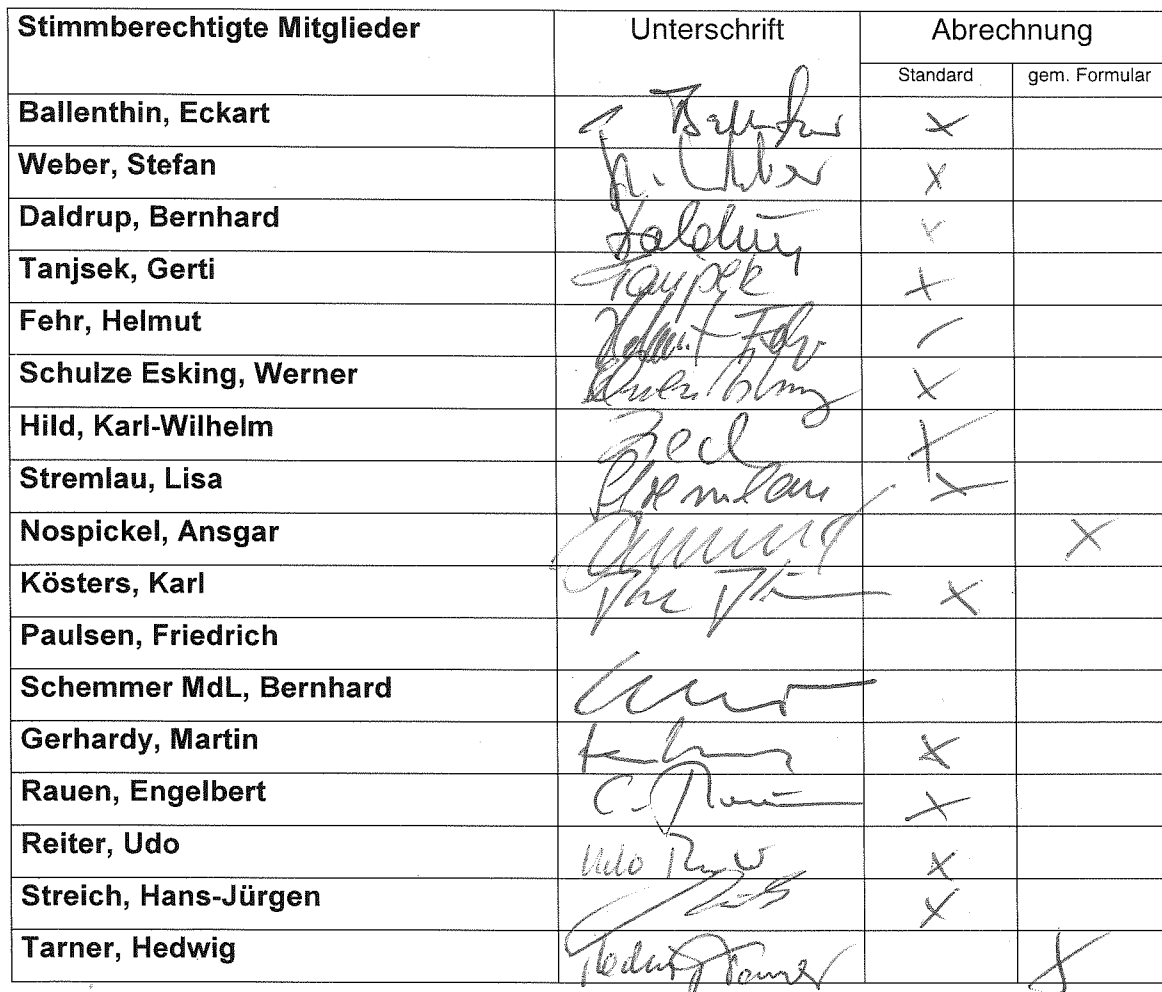 Stimmberechtigte Mitglieder Unterschrift Abrechnung
Standard gem. Formular
Ballenthin, Eckart x
Weber, Stefan Weber x
Daldrup, Bernhard Daldrup x
Tanjsek, Gerti Tanjsek x
Fehr, Helmut Helmut Fehr
Schulze Esking, Werner x
Hild, Karl-Wilhelm x
Stremlau, Lisa Stremlau x
Nospickel, Ansgar x
Kösters, Karl x
Paulsen, Friedrich
Schemmer MdL, Bernhard
Gerhardy, Martin x
Rauen, Engelbert x
Reiter, Udo Udo x
Streich, Hans-Jürgen x
Tarner, Hedwig Hedwig Tarner x